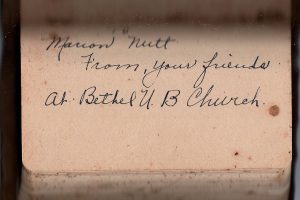 Marion Nutt
From, your friends
at Bethel U B Church.